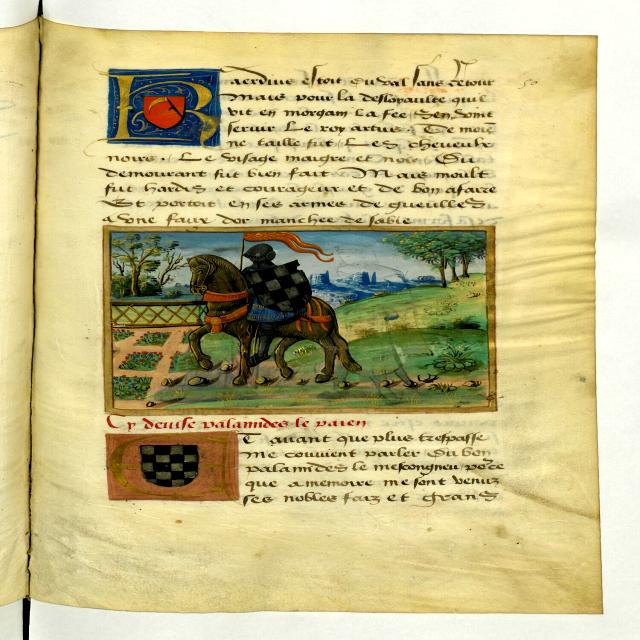 Kaerdius estoit du val sans retour
Mais pour la desloyaulte quil
vit en morgain la fee sen vont
seruir Le roy artus. De moie
ne taille fut Les cheueulx
noirs. Le visage maigre et noir Du
demourant fut bien fait Mais moult
fut hardis et courageux et de bon afaire
Et portoit en ses armes de gueulles
a vne faux dor manchee de sable
Cy deuise palamides le paien
E auant que plus trespasse
me couuient parler du bon
palamides le mescongneu pource
que a memoire me sont venuz
ses nobles faiz et grand